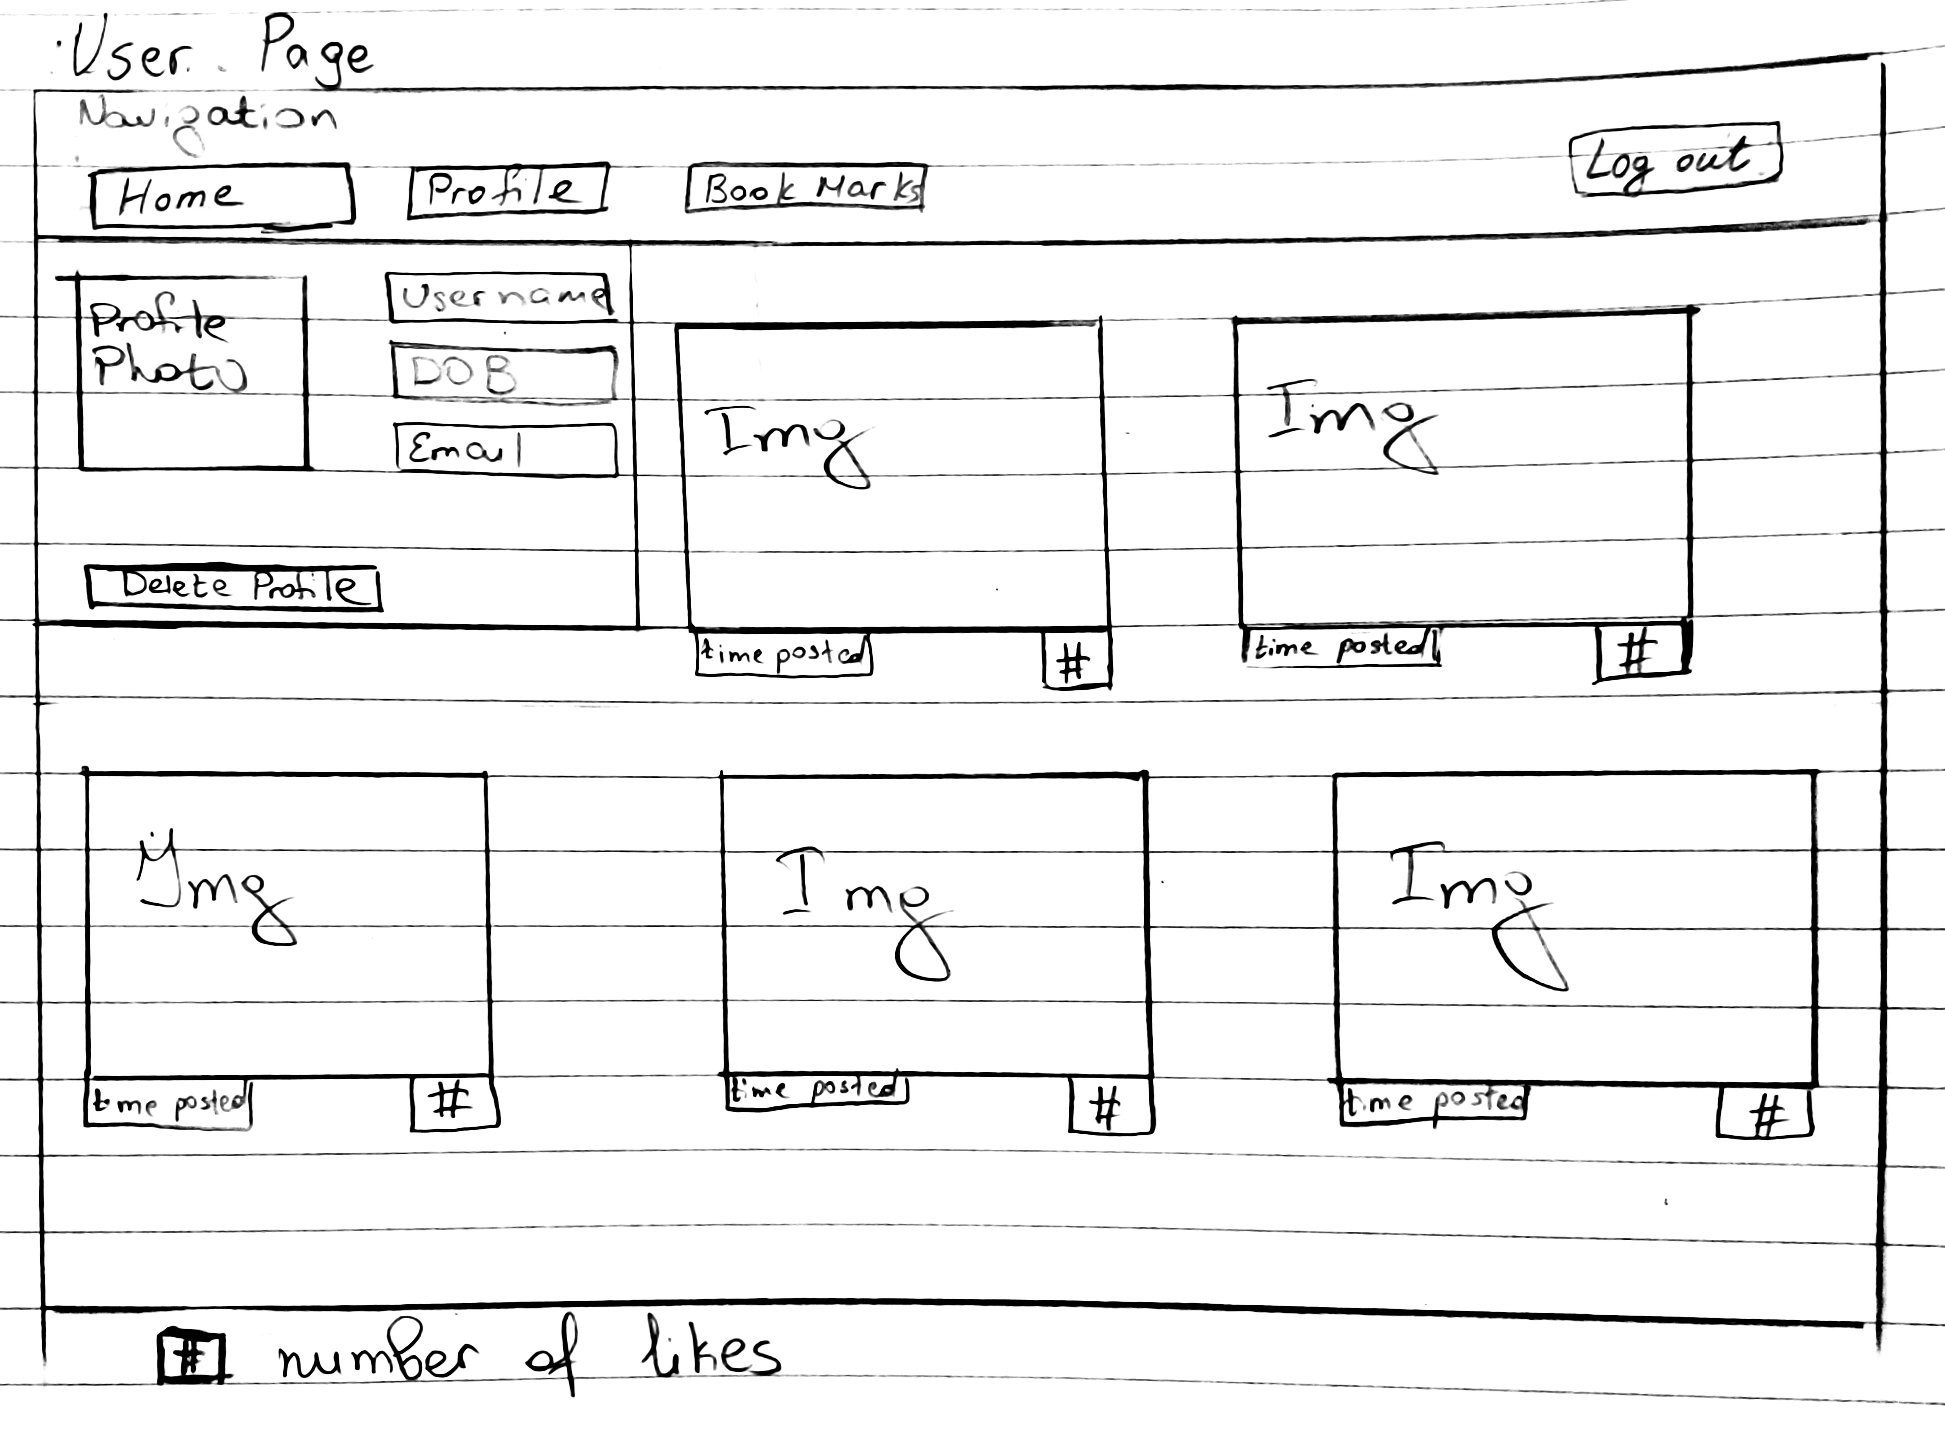 User Page
Navigation
Home Profile Book Marks Log out
Profile Photo
Username
DOB
Email
Delete Profile
Img
time posted #
Img
time posted #
Img
time posted #
Img
time posted #
Img
time posted #
# number of likes